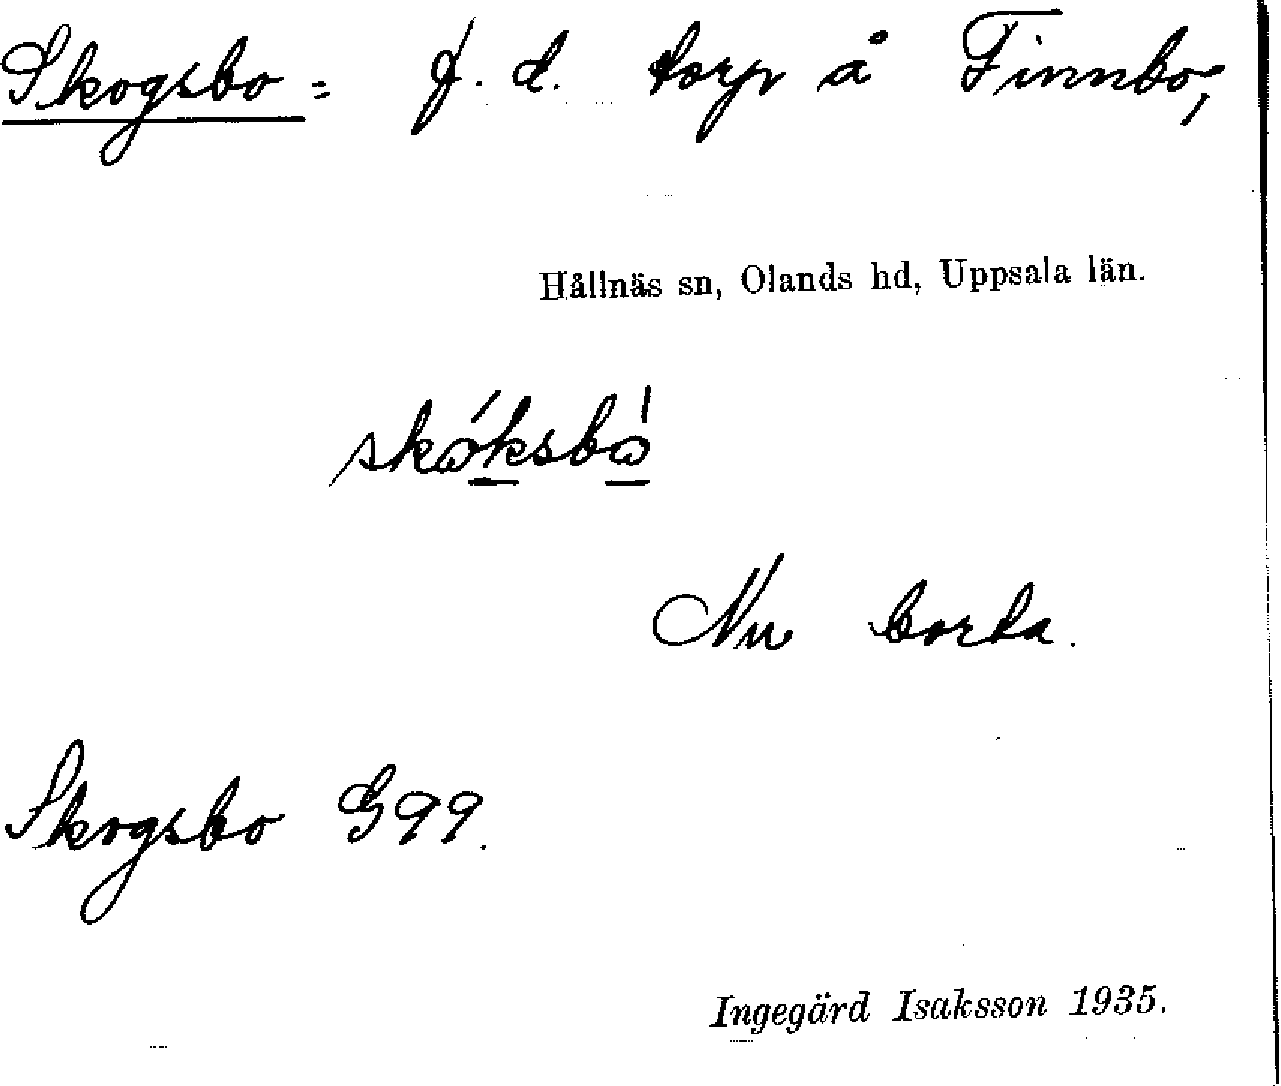 Skogsbo = f. d. torp å Finnbo,
Hållnäs sn, Olands hd, Uppsala län.
skóksbò
Nu borta.
Skogsbo G99.
Ingegärd Isaksson 1935.